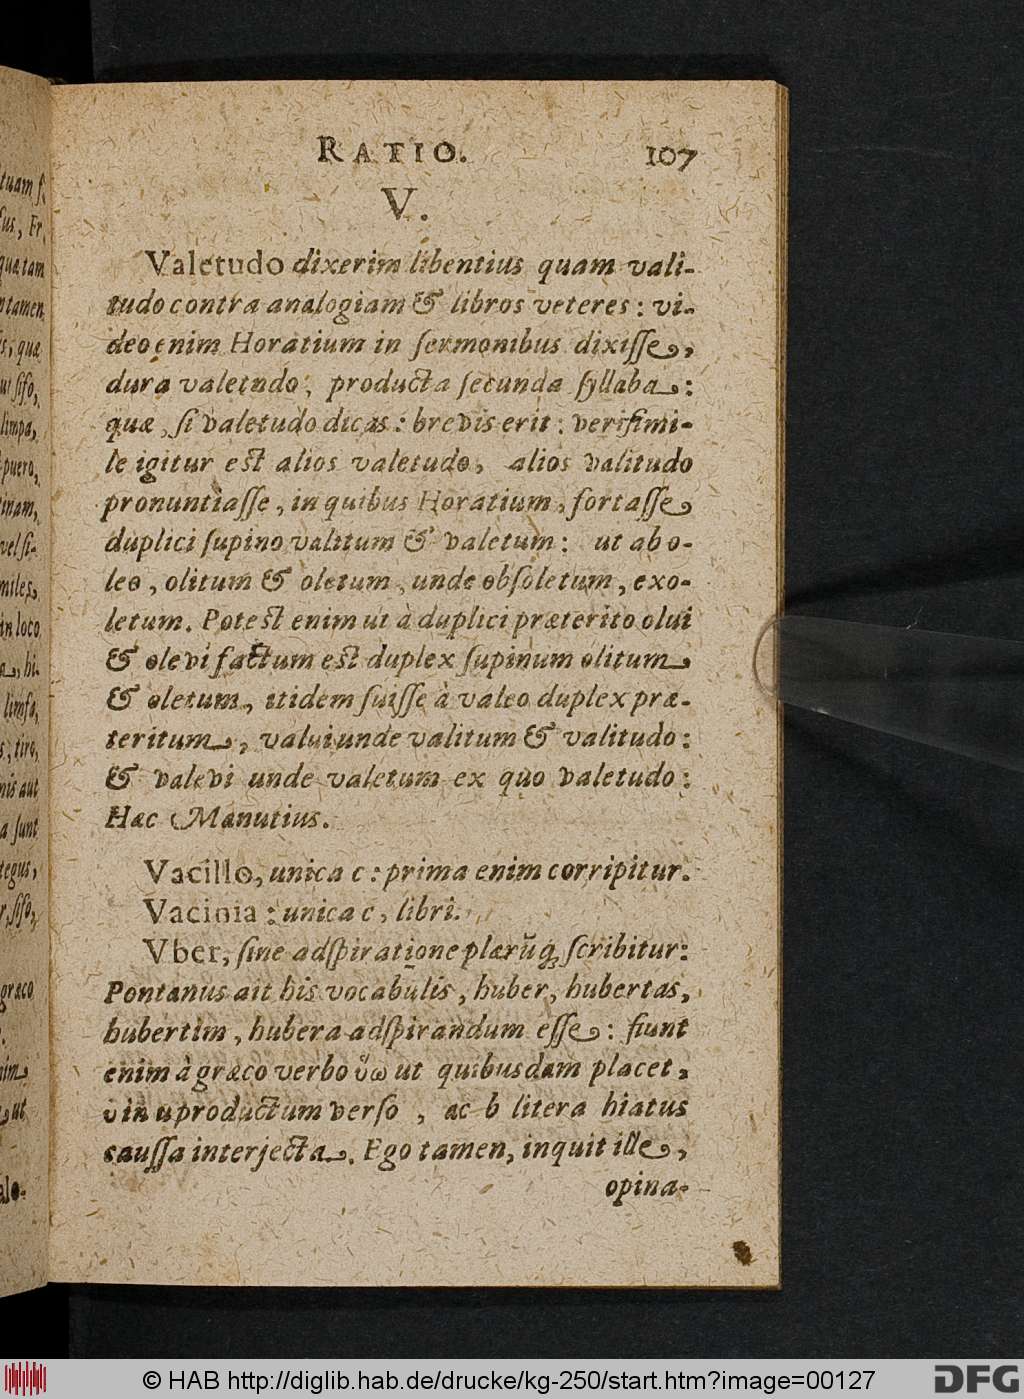 RATIO. 107
V.
Valetudo dixerim libentius quam vali-
tudo contra analogiam & libros veteres: vi-
deo enim Horatium in sermonibus dixisse,
dura valetudo, producta secunda syllaba:
quæ, si valetudo dicas: brevis erit: verisimi-
le igitur est alios valetudo, alios valitudo
pronuntiasse, in quibus Horatium, fortasse
duplici supino valitum & valetum: ut abo-
leo, olitum & oletum, unde obsoletum, exo-
letum. Potest enim ut à duplici præterito olui
& olevi factum est duplex supinum olitum
& oletum, itidem fuisse à valeo duplex præ-
teritum, valui unde valitum & valitudo:
& valevi unde valetum ex quo valetudo:
Hæc Manutius.
Vacillo, unica c: prima enim corripitur.
Vacinia: unica c, libri.
Vber, sine adspiratione plærũq; scribitur:
Pontanus ait his vocabulis, huber, hubertas,
hubertim, hubera adspirandum esse: fiunt
enim à græco verbo ὕω ut quibusdam placet,
υ in u productum verso, ac b litera hiatus
caussa interjecta. Ego tamen, inquit ille,
opina-
tuam s.
sus, Fr.
quætam
ntamen
s, quæ
limpa,
puero,
tinam,
vel si-
miles,
in loco
a, hi-
limfa,
s, tiro,
nis aut
a sunt
tegus,
r, siso,
græco
nim
ut
alo-
© HAB http://diglib.hab.de/drucke/kg-250/start.htm?image=00127
DFG